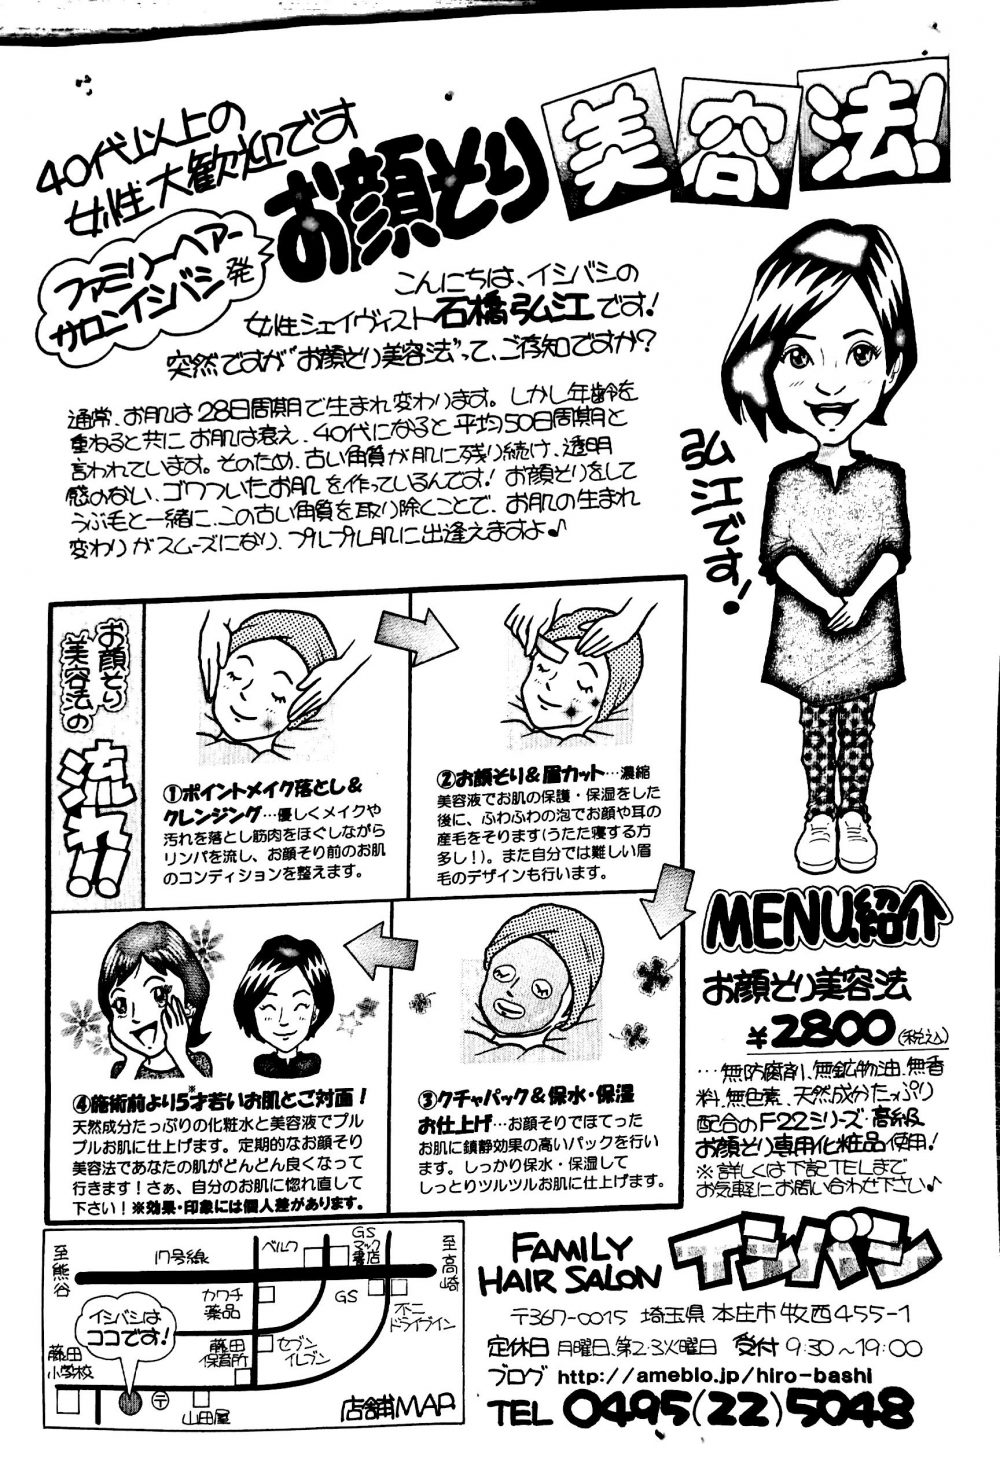 40代以上の
女性大歓迎です
ファミリーヘアー
サロンイシバシ発
お顔そり美容法!
こんにちは、イシバシの
女性シェイヴィスト石橋弘江です!
突然ですが“お顔そり美容法”って、ご存知ですか?
通常、お肌は28日周期で生まれ変わります。しかし年齢を
重ねると共にお肌は衰え、40代になると平均50日周期と
言われています。そのため、古い角質が肌に残り続け、透明
感のない、ゴワついたお肌を作っているんです!お顔そりをして
うぶ毛と一緒に、この古い角質を取り除くことで、お肌の生まれ
変わりがスムーズになり、プルプル肌に出逢えますよ♪
弘江です!
お顔そり
美容法の
流れ!!
①ポイントメイク落とし&
クレンジング…優しくメイクや
汚れを落とし筋肉をほぐしながら
リンパを流し、お顔そり前のお肌
のコンディションを整えます。
②お顔そり&眉カット…濃縮
美容液でお肌の保護・保湿をした
後に、ふわふわの泡でお顔や耳の
産毛をそります(うたた寝する方
多し!)。また自分では難しい眉
毛のデザインも行います。
③クチャパック&保水・保湿
お仕上げ…お顔そりでほてった
お肌に鎮静効果の高いパックを行い
ます。しっかり保水・保湿して
しっとりツルツルお肌に仕上げます。
④施術前より5才若いお肌とご対面!
※
天然成分たっぷりの化粧水と美容液でプル
プルお肌に仕上げます。定期的なお顔そり
美容法であなたの肌がどんどん良くなって
行きます!さぁ、自分のお肌に惚れ直して
下さい!※効果・印象には個人差があります。
MENU紹介
お顔そり美容法
¥2800(税込)
…無防腐剤、無鉱物油、無香
料、無色素、天然成分たっぷり
配合のF22シリーズ・高級
お顔そり専用化粧品使用!
※詳しくは下記TELまで
お気軽にお問い合わせ下さい♪
至熊谷
17号線
ベルク
GS
マック
書店
至高崎
カワチ
薬品
GS
不二
ドライブイン
イシバシは
ココです!
藤田
保育所
セブン
イレブン
藤田
小学校
〒
山田屋
店舗MAP
FAMILY
HAIR SALON
イシバシ
〒367-0015 埼玉県本庄市牧西455-1
定休日 月曜日、第2・3火曜日 受付 9:30〜19:00
ブログ http://ameblo.jp/hiro-bashi
TEL 0495(22)5048